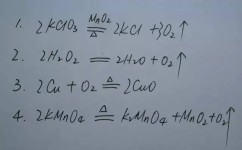 1. 2KClO₃ MnO₂ ═ △ 2KCl + 3O₂↑
2. 2H₂O₂ ═ 2H₂O + O₂↑
3. 2Cu + O₂ ≜ 2CuO
4. 2KMnO₄ ≜ K₂MnO₄ + MnO₂ + O₂↑